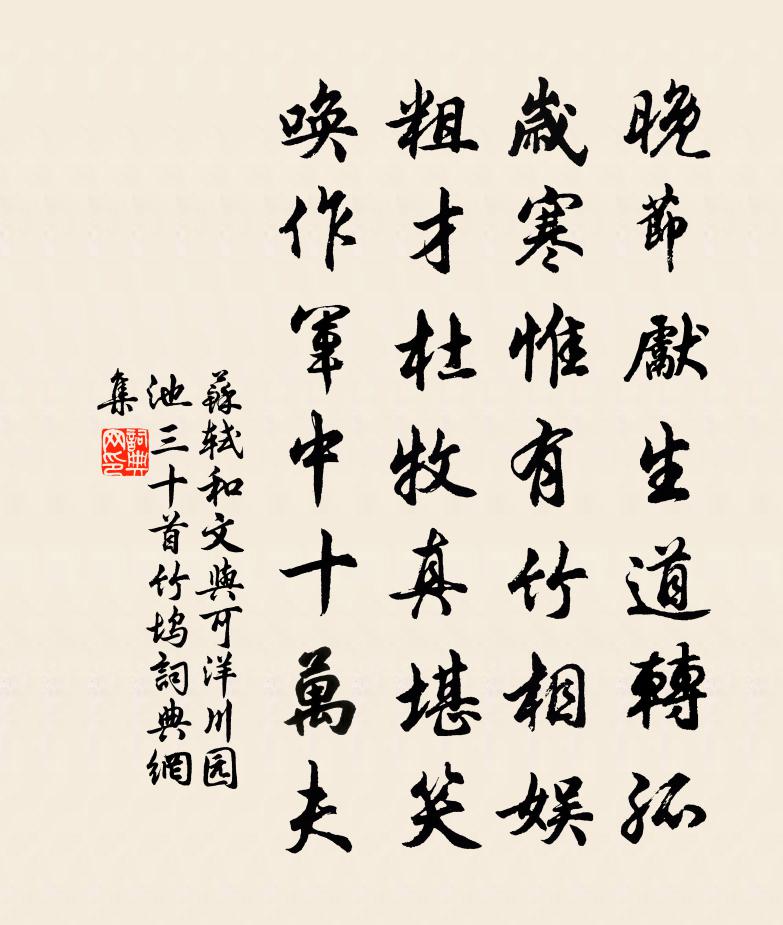 晚節獻生道轉孤
歲寒惟有竹相娛
粗才杜牧真堪笑
喚作軍中十萬夫
蘇軾和文與可洋川园
池三十首竹塢詞典網
集
詞典
网印